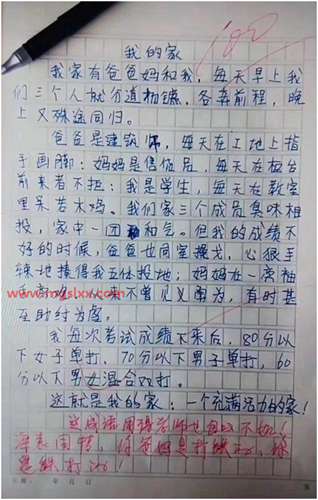 100
我的家
我家有爸爸妈和我,每天早上我
们三个人就分道扬镳,各奔前程,晚
上又殊途同归。
爸爸是建筑师,每天在工地上指
手画脚;妈妈是售货员,每天在柜台
前来者不拒;我是学生,每天在教室
里呆若木鸡。我们家三个成员臭味相
投,家中一团和气。但我的成绩不
好的时候,爸爸也同室操戈,心狠手
辣地揍得我五体投地;妈妈在一旁袖
手旁观,从来不曾见义勇为,有时甚
www.mgslxx.com
至助纣为虐。
我每次考试成绩下来后,80分以
下女子单打,70分以下男子单打,60
分以下男女混合双打。
这就是我的家:一个充满活力的家!